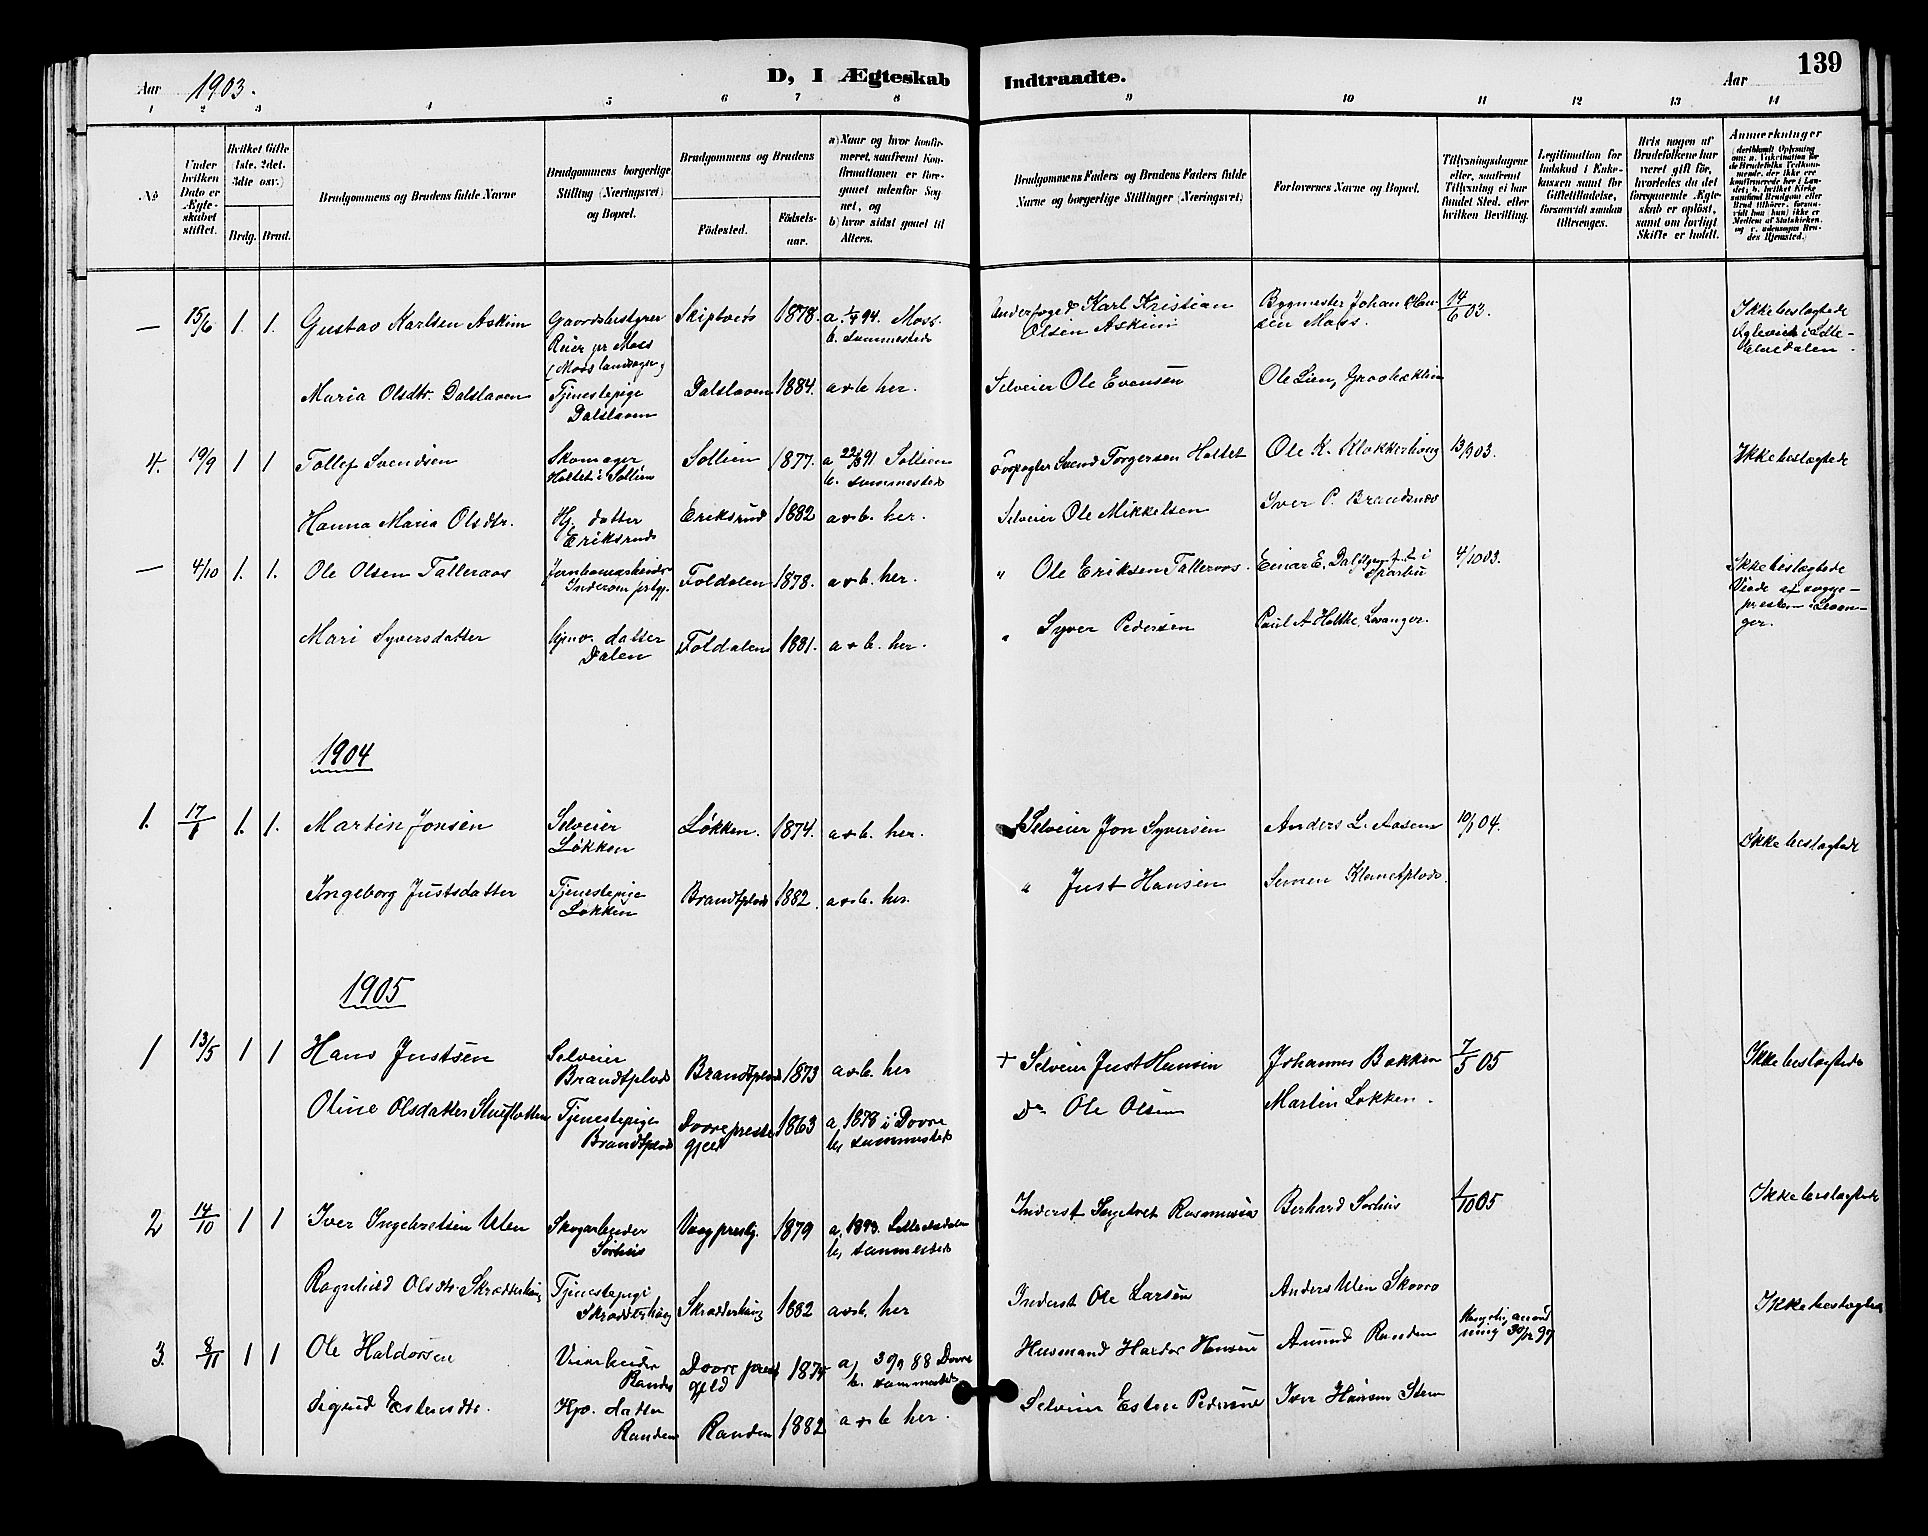 139
D, I Ægteskab Indtraadte.
Aar 1903.
Aar
1 2 3 4 5 6 7 8 9 10 11 12 13 14
No.
Under hvilken Dato er Ægteskabet stiftet.
Hvilket Gifte (1ste, 2det, 3die osv.)
Brdg. Brud.
Brudgommens og Brudens fulde Navne
Brudgommens borgerlige Stilling (Næringsvei) og Bopæl.
Brudgommens og Brudens
Fødested.
Fødselsaar.
a) Naar og hvor konfirmeret, samfremt Konfirmationen er foregaaet udenfor Sognet, og
b) hvor sidst gaaet til Alters.
Brudgommens Faders og Brudens Faders fulde Navne og borgerlige Stillinger (Næringsvei)
Forlovernes Navne og Bopæl.
Tillysningsdagene eller, saafremt Tillysning ei har fundet Sted, efter hvilken Bevilling.
Legitimation for Indskud i Enkekassen samt for Giftetilladelse, forsaavidt saadan tiltrænges.
Hvis nogen af Brudefolkene har været gift før, hvorledes da det foregaaende Ægteskab er opløst, samt om lovligt Skifte er holdt.
Anmerkninger
— 15/6 1. 1. Gustav Karlsen Askim Gaardsbestyrer Skiptvedt 1878. a. 94. Moss. Karl Kristian Bygmester Johan Han- 14/6 03. Ikke beslægtede
Reier pr Moss b. sammesteds Olsen Askim sen Moss.
(Moss landsogn)
Elvedalen.
Maria Olsdtr. Dalslaaen Tjenestepige Dalslaaen 1884. a & b her. Selveier Ole Evensen Ole Lien,
Dalslaaen
4. 19/9 1 1 Tollef Svendsen Skomager Sollien 1877. a, 91 Sollien Svend Torgersen Holtet Ole K. Klokkerhoug 13/9 03. Ikke beslægtede
Holtet i Sollien b. sammesteds
Hanna Maria Olsdtr. Hj. datter Eriksrud 1882 a & b. her. Selveier Ole Mikkelsen Iver P. Brandsnæs
Eriksrud
— 4/10 1. 1. Ole Olsen Talleraas Jernbanearbeider Foldalen 1878. a & b. her. " Ole Eriksen Talleraas. Einar E. 4/10 03. Ikke beslægtede
Inderøen prstgj. Sparbu Viede af sogne-
presten i Levan-
ger.
Mari Syversdatter hjmv. datter Foldalen 1881. a & b. her. " Syver Pedersen Paul A Holtke, Levanger.
Dalen
1904
1. 17/1 1. 1. Martin Jonsen Selveier Løkken. 1874. a & b. her. Selveier Jon Syversen Anders L. Aasen 10/1 04. Ikke beslægtede
Løkken
Ingeborg Justsdatter Tjenestepige Brandtplads 1882. a & b. her. " Just Hansen Simen Klemetplads.
Løkken
1905
1 13/5 1 1 Hans Justsen Selveier Brandtplads 1873 a & b. her + Selveier Just Hansen Johannes Bakken 7/5 05 Ikke beslægtede
Brandtplads
Oline Olsdatter Stueflotten Tjenestepige Dovre preste- 1863 a, 1878 i Dovre Do. Ole Olsen Martin Løkken.
Brandtplads gjeld b, sammesteds
2 14/10 1 1 Iver Ingebretsen Ulen Skogarbeider Vaag prestg. 1879 a, 1893. Lille Elvdalen Inderst Ingebret Rasmussen Berhard Sørhus 1/10 05 Ikke beslægtede
Sørhus b, sammesteds
Ragnhild Olsdtr. Skrædderhaug Tjenestepige Skrædderhaug 1882 a & b. her Inderst Ole Larsen Anders Ulen Skovro
Skrædderhaug
3. 8/11 1 1 Ole Haldorsen Veiarbeider Dovre prest- 1874 a, 30/9 88 Dovre Husmand Haldor Hansen Amund Randen Kongelig anord- Ikke beslægtede
Randen gjeld b. sammesteds ning
Sigrid Estensdtr. Hjv. datter Randen 1882 a & b her. Selveier Esten Pedersen Iver Hansen
Randen